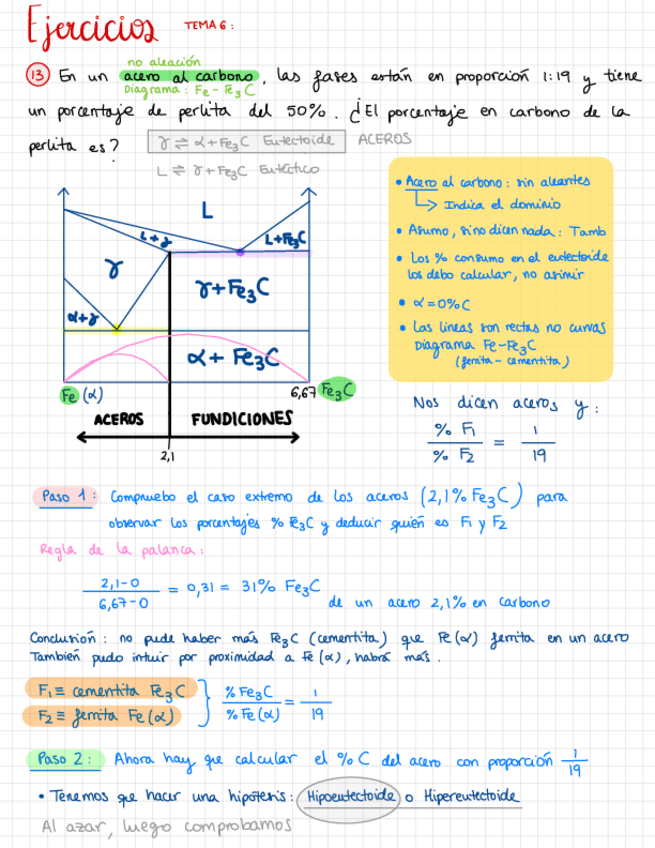 Ejercicios TEMA 6:
no aleación
13 En un acero al carbono, las fases están en proporción 1:19 y tiene
Diagrama: Fe-Fe3C
un porcentaje de perlita del 50%. ¿El porcentaje en carbono de la
perlita es? γ ⇌ α+Fe3C Eutectoide ACEROS
L ⇌ γ+Fe3C Eutéctico
L
L+γ
L+Fe3C
γ
γ+Fe3C
α+γ
α+ Fe3C
Fe (α)
6,67 Fe3C
ACEROS
FUNDICIONES
2,1
• Acero al carbono: sin aleantes
↳ Indica el dominio
• Asumo, si no dicen nada: Tamb
• Los % consumo en el eutectoide
los debo calcular, no asimir
• α=0%C
• Las líneas son rectas no curvas
Diagrama Fe-Fe3C
(ferrita-cementita)
Nos dicen aceros y:
% F1 / % F2 = 1 / 19
Paso 1: Compruebo el caso extremo de los aceros (2,1% Fe3C) para
observar los porcentajes % Fe3C y deducir quién es F1 y F2
Regla de la palanca:
2,1-0 / 6,67-0 = 0,31 = 31% Fe3C
de un acero 2,1% en carbono
Conclusión: no puede haber más Fe3C (cementita) que Fe(α) ferrita en un acero
También pudo intuir por proximidad a Fe(α), habrá más.
F1 ≡ cementita Fe3C
F2 ≡ ferrita Fe(α)
% Fe3C / % Fe(α) = 1 / 19
Paso 2: Ahora hay que calcular el %C del acero con proporción 1/19
• Tenemos que hacer una hipótesis: Hipoeutectoide o Hipereutectoide
Al azar, luego comprobamos